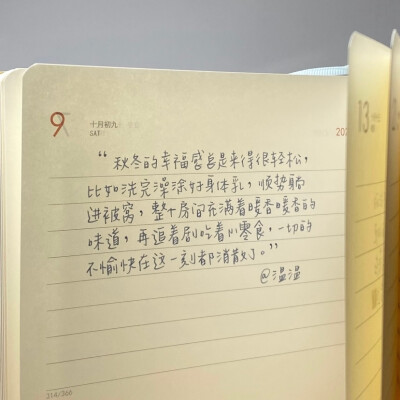 9
十月初九
SAT
202
13
“秋冬的幸福感总是来得很轻松，
比如洗完澡涂好身体乳，顺势躺
进被窝，整个房间充满着暖香暖香的
味道，再追着剧吃着小零食，一切的
不愉快在这一刻都消散了。”
@温温
314/366